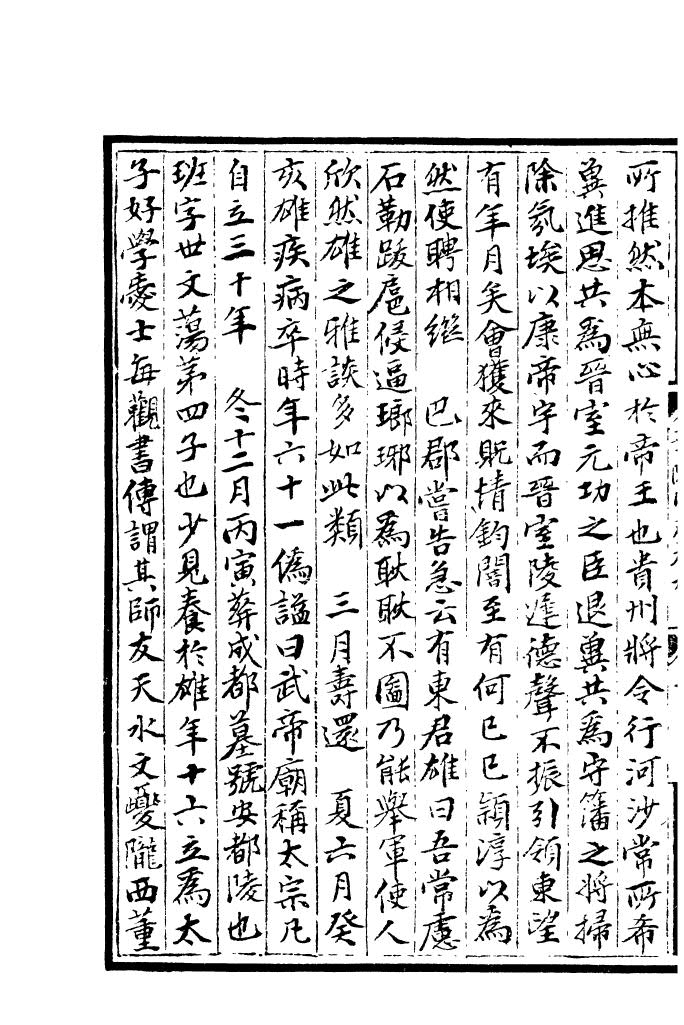 所推然本無心於帝王也貴州將令行河沙常所希
冀進思共爲晉室元功之臣退冀共爲守籓之將掃
除氛埃以康帝宇而晉室陵遲德聲不振引領東望
有年月矣會獲來貺情鈞闇至有何已已頴淳以爲
然使聘相繼　巴郡嘗告急云有東君雄曰吾常慮
石勒跋扈侵逼瑯琊以爲耿耿不圖乃能舉軍使人
欣然雄之雅談多如此類　三月壽還　夏六月癸
亥雄疾病卒時年六十一僞謚曰武帝廟稱太宗凡
自立三十年　冬十二月丙寅葬成都墓號安都陵也
班字世文蕩第四子也少見養於雄年十六立爲太
子好學愛士每觀書傳謂其師友天水文夔隴西董